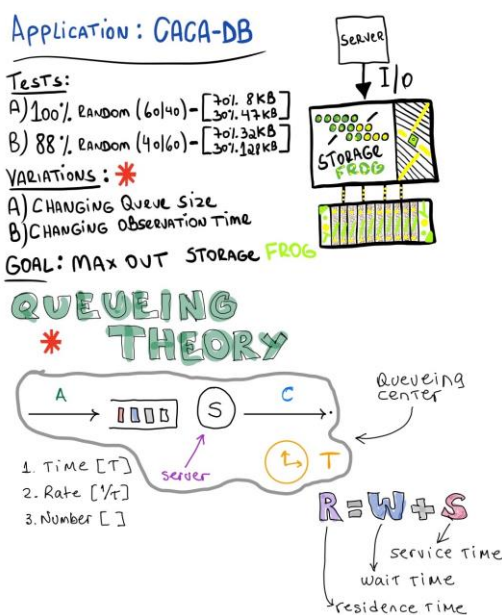 Application: CACA-DB
SERVER
I/O
TESTS:
A) 100% RANDOM (60/40) - [70% 8KB
30% 47KB]
B) 88% RANDOM (40/60) - [70% 32KB
30% 128KB]
STORAGE
FROG
VARIATIONS: *
A) CHANGING Queue Size
B) CHANGING OBSERVATION TIME
GOAL: MAX OUT STORAGE FROG
QUEUEING
* THEORY
A
S
C
T
Queueing
center
server
1. Time [T]
2. Rate [1/T]
3. Number [ ]
R = W + S
service time
wait time
residence time